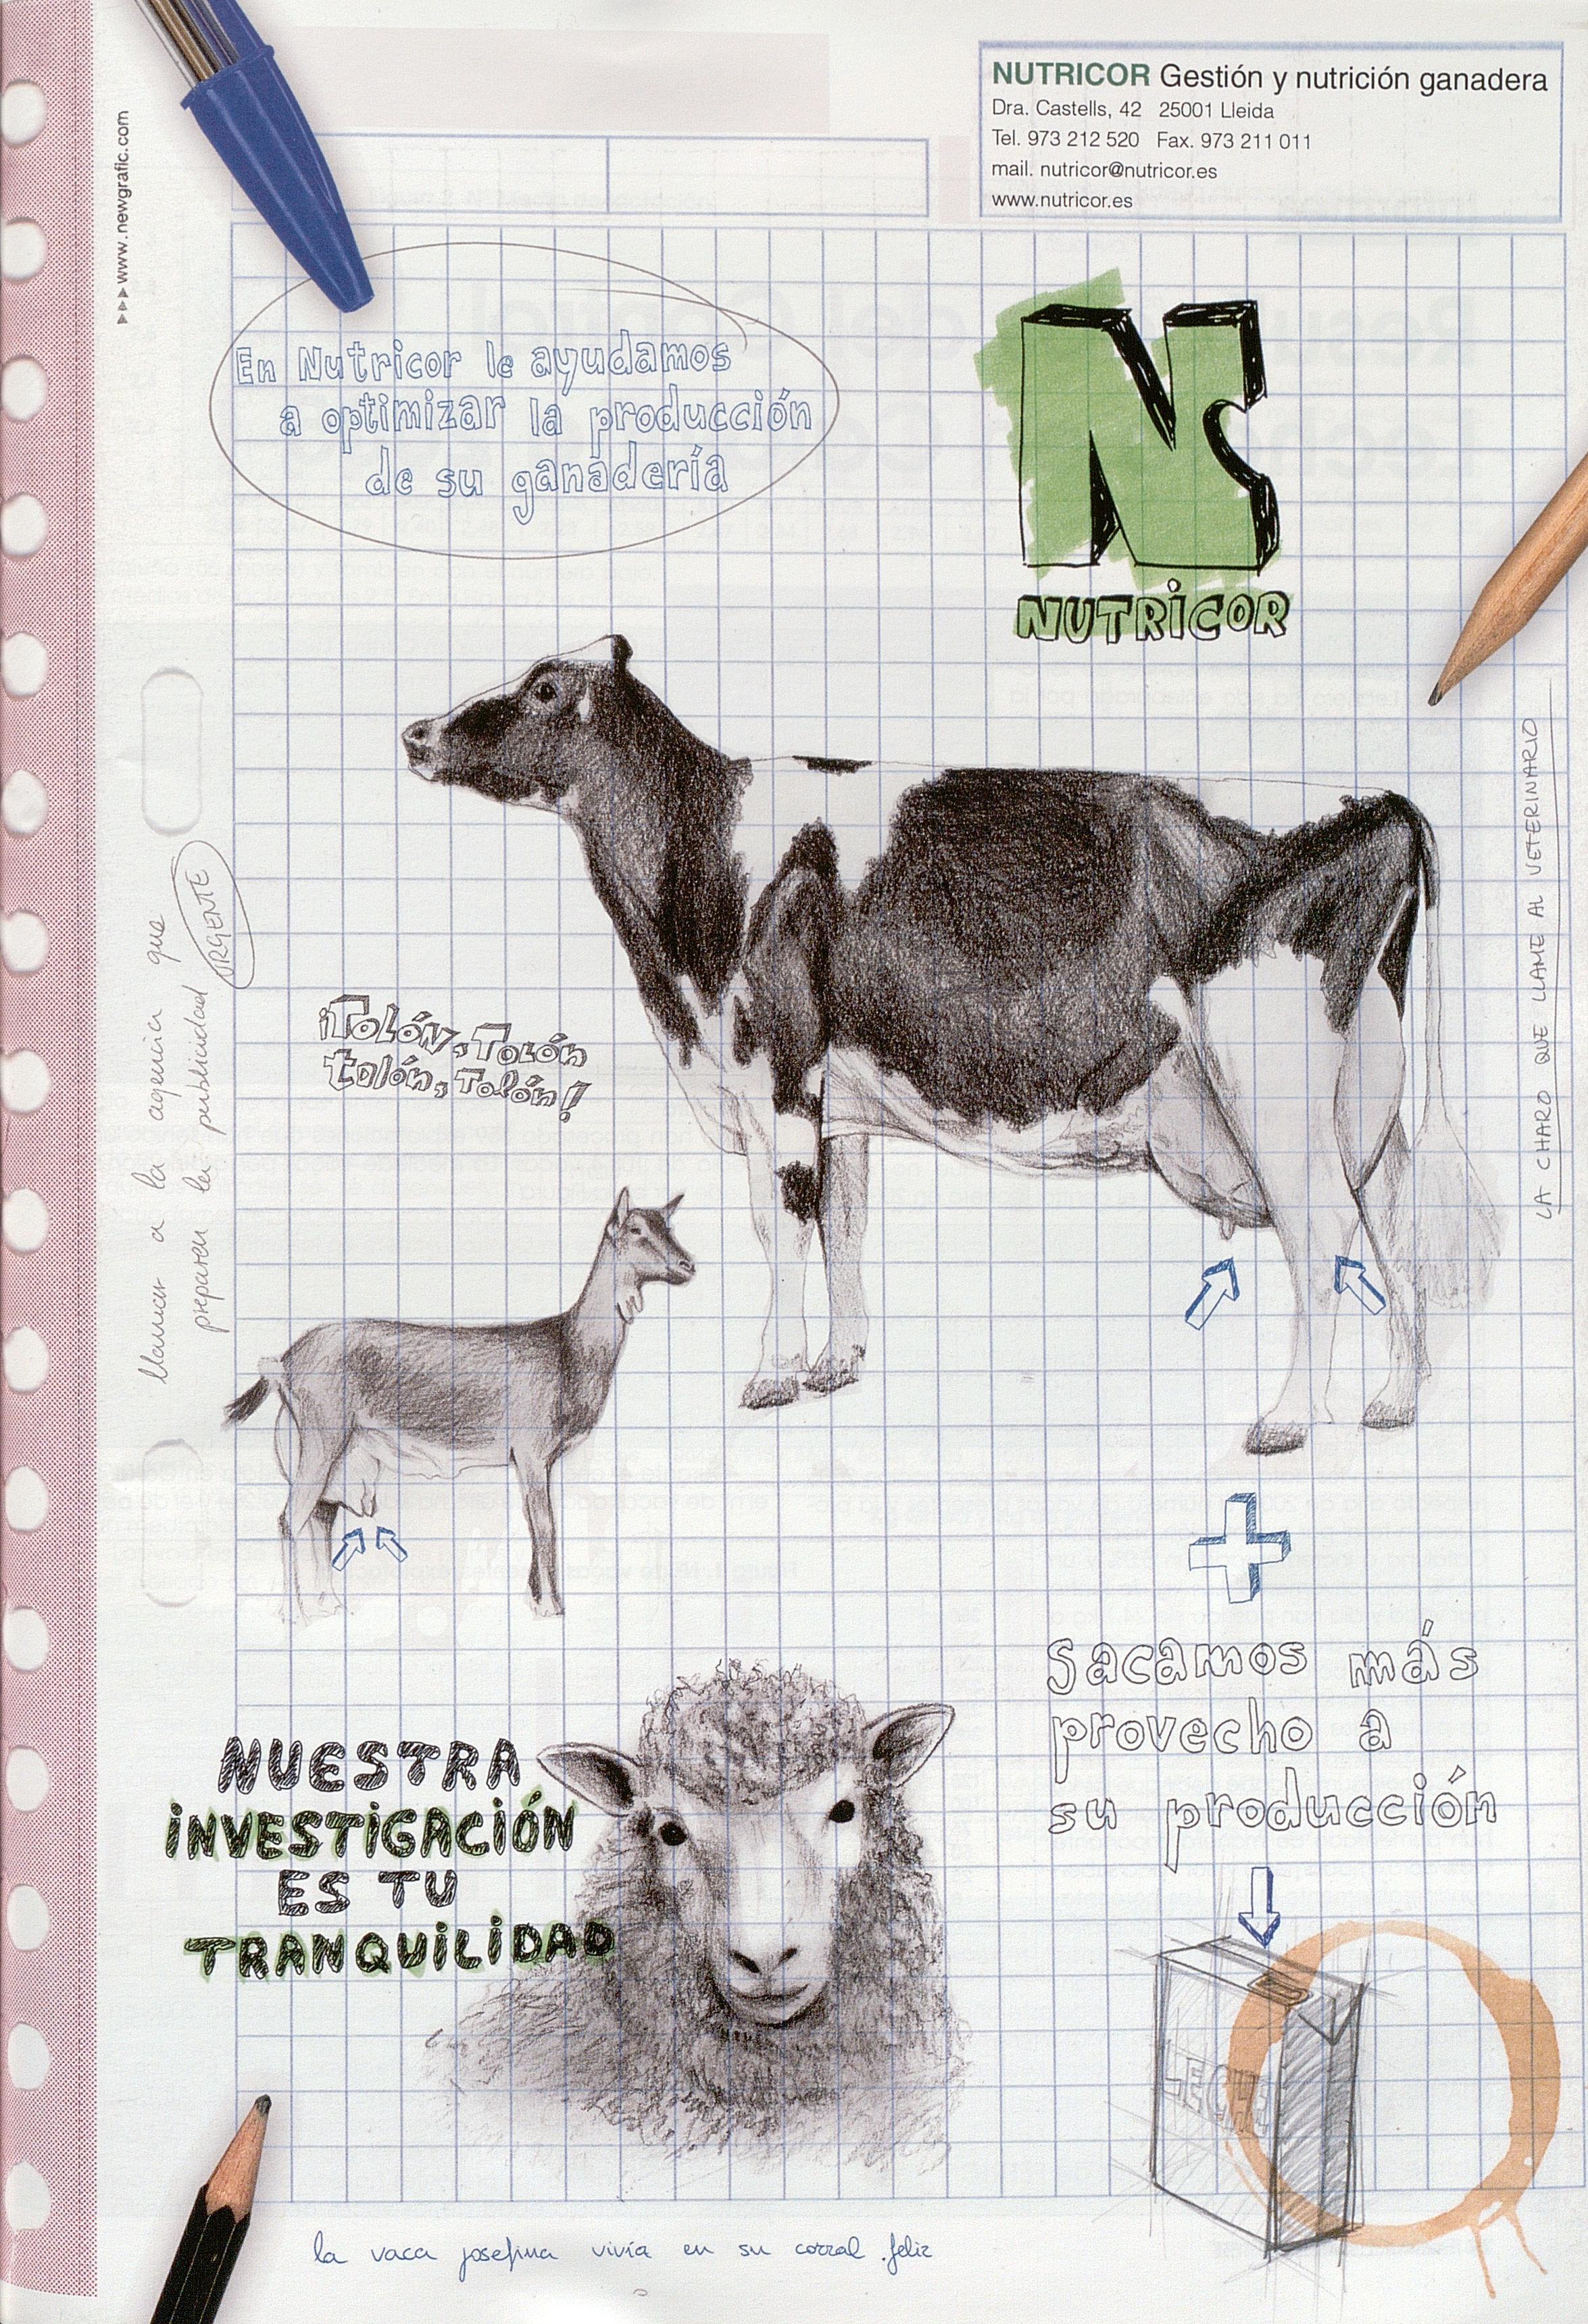 ▶▶▶www.newgrafic.com
NUTRICOR Gestión y nutrición ganadera
Dra. Castells, 42 25001 Lleida
Tel. 973 212 520 Fax. 973 211 011
mail. nutricor@nutricor.es
www.nutricor.es
En Nutricor le ayudamos
a optimizar la producción
de su ganadería
N
NUTRiCOR
LA CHARO QUE LLAME AL VETERINARIO
llamar a la agencia que
preparen la publicidad URGENTE
¡Tolón, Tolón
tolón, Tolón!
+
Sacamos más
provecho a
su producción
NUESTRA
iNVESTiGACiÓN
ES TU
TRANQUiLiDAD
LECHE
la vaca josefina vivía en su corral feliz